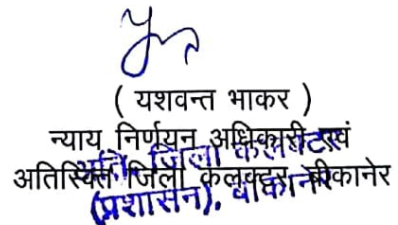 ( यशवन्त भाकर )
न्याय निर्णयन अधिकारी एवं
अति. जिला कलक्टर
अतिरिक्त जिला कलक्टर, बीकानेर
(प्रशासन), बीकानेर